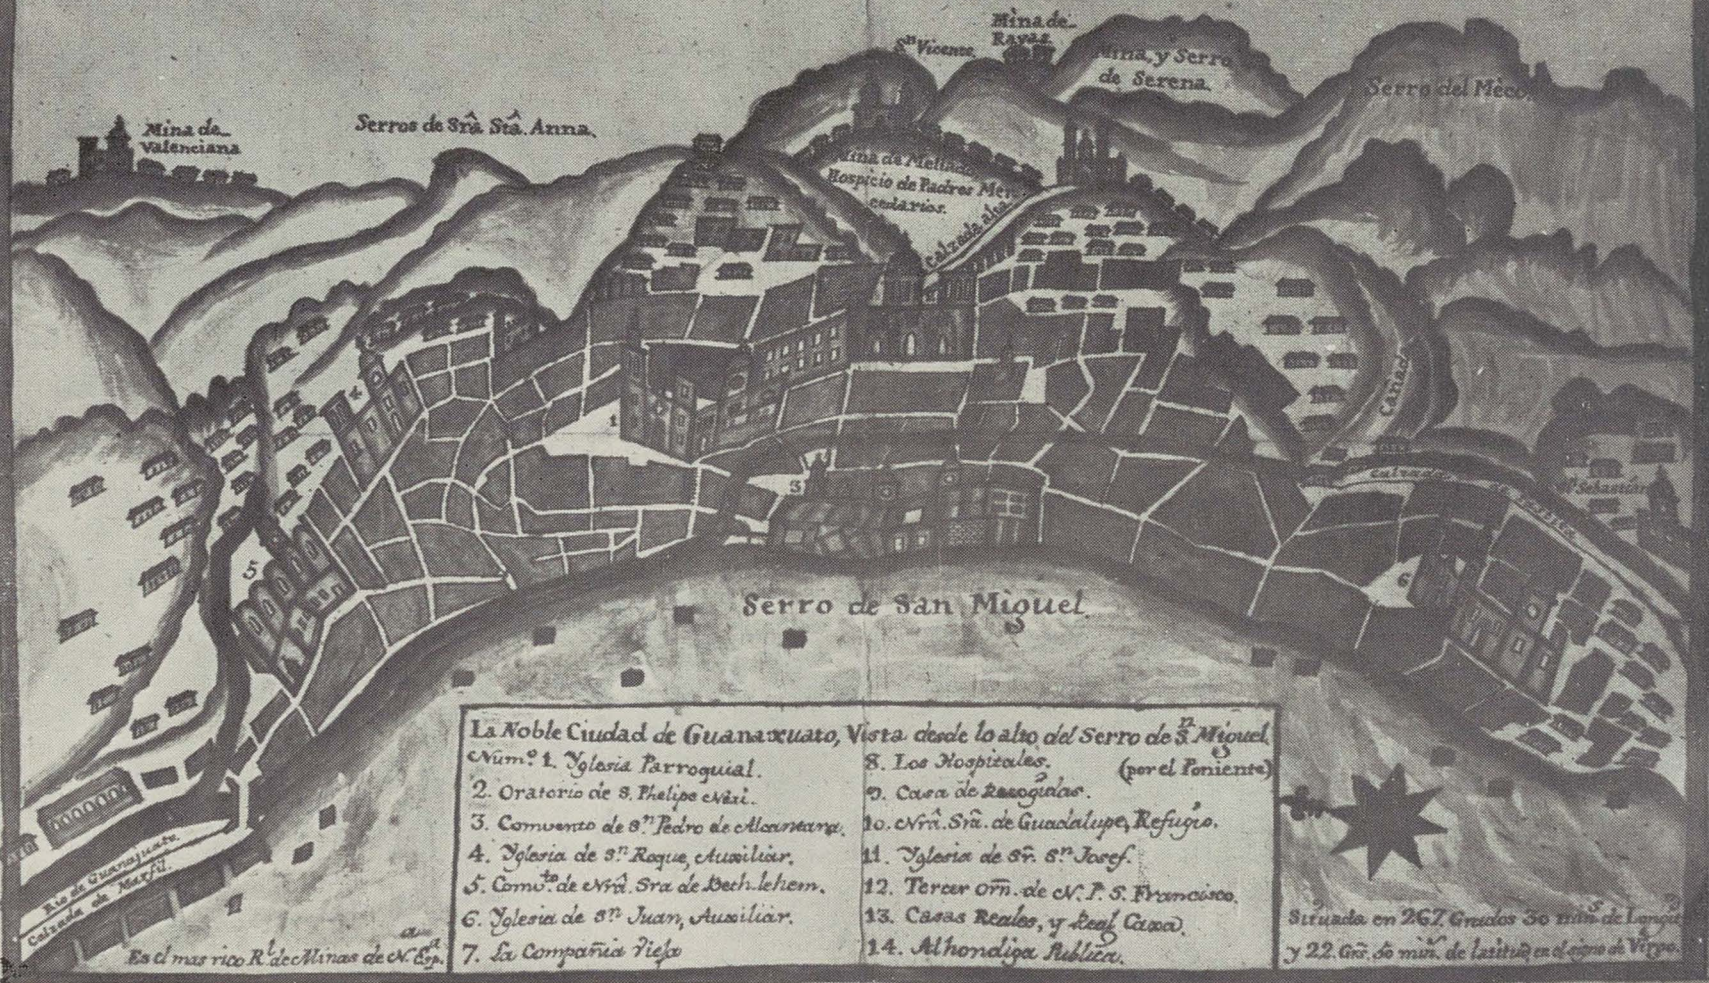 Mina de
Valenciana
Serros de Srâ Stâ. Anna.
Sn Vicente.
Mina de
Rayas
Mina, y Serro
de Serena.
Serro del Meco.
Mina de Mellado
Hospicio de Padres Mer-
cedarios.
Calzada alta
Cañada
Calzada de
Sn Sebastián
1
3
4
5
6
Serro de San Miguel
La Noble Ciudad de Guanaxuato, Vista desde lo alto del Serro de Sn. Miguel.
(por el Poniente)
Num.º 1. Yglesia Parroquial.
2. Oratorio de S. Phelipe Neri.
3. Comvento de Sn Pedro de Alcantara.
4. Yglesia de Sn Roque, Auxiliar.
5. Comv.to de Nrâ. Sra de Beth-lehem.
6. Yglesia de Sn Juan, Auxiliar.
7. La Compañia Vieja
8. Los Hospitales.
9. Casa de Recogidas.
10. Nrâ. Srâ. de Guadalupe, Refugio.
11. Yglesia de Sr̃. Sn Josef.
12. Tercer Orn̄. de N. P. S. Francisco.
13. Casas Reales, y Real Caxa.
14. Alhondiga Publica.
Rio de Guanajuato.
Calzada de Marfil.
Es el mas rico Rl. de Minas de Na. Espa.
Situada en 267 Grados 30 mins de Longd
y 22. Grs. 50 min. de latitud en el signo de Virgo.